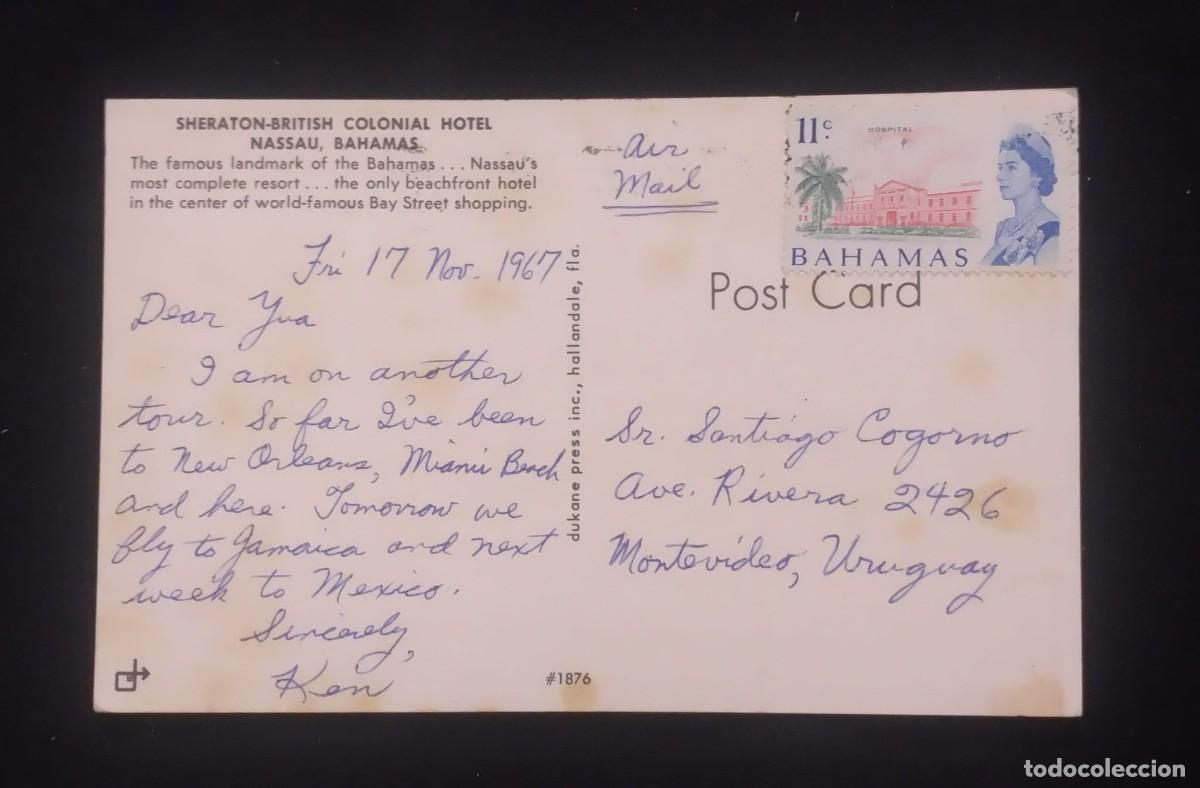 SHERATON-BRITISH COLONIAL HOTEL
NASSAU, BAHAMAS
The famous landmark of the Bahamas . . . Nassau's
most complete resort . . . the only beachfront hotel
in the center of world-famous Bay Street shopping.
Fri 17 Nov. 1967
Dear Yua
I am on another
tour. So far I've been
to New Orleans, Miami Beach
and here. Tomorrow we
fly to Jamaica and next
week to Mexico.
Sincerely,
Ken
dukane press inc., hallandale, fla.
#1876
Air
Mail
11c
HOSPITAL
BAHAMAS
Post Card
Sr. Santiágo Cogorno
Ave. Rivera 2426
Montevideo, Uruguay
todocoleccion